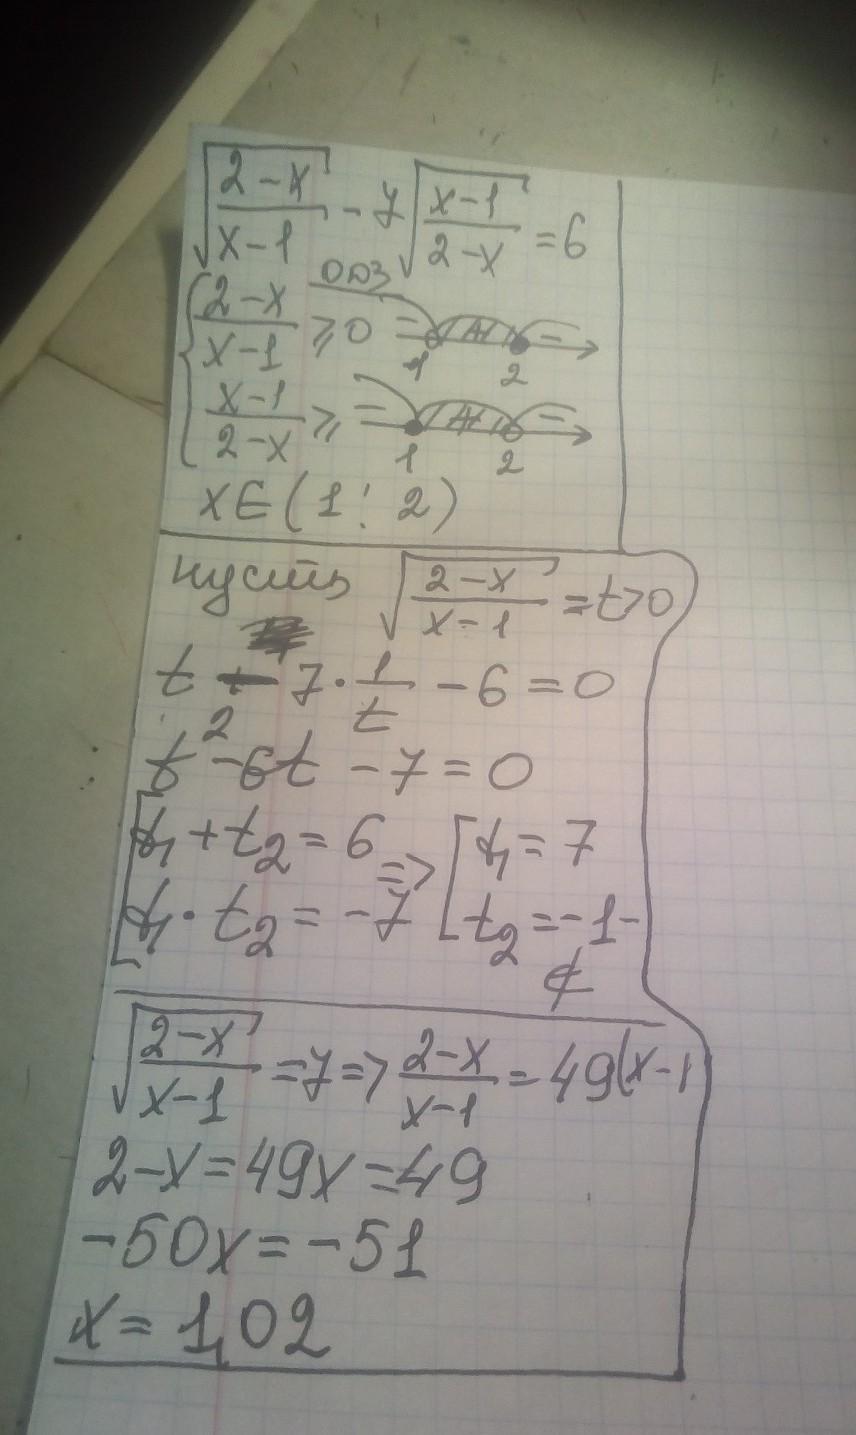 √((2-x)/(x-1)) - 7√((x-1)/(2-x)) = 6
ОДЗ
{ (2-x)/(x-1) ≥ 0 - + -
1 2
(x-1)/(2-x) ≥ - + -
1 2
x∈(1; 2)
пусть √((2-x)/(x-1)) = t>0
t - 7 · 1/t - 6 = 0
t² - 6t - 7 = 0
[ t₁ + t₂ = 6 => [ t₁ = 7
t₁ · t₂ = -7 t₂ = -1 -
∉
√((2-x)/(x-1)) = 7 => (2-x)/(x-1) = 49(x-1
2-x = 49x = 49
-50x = -51
x = 1,02